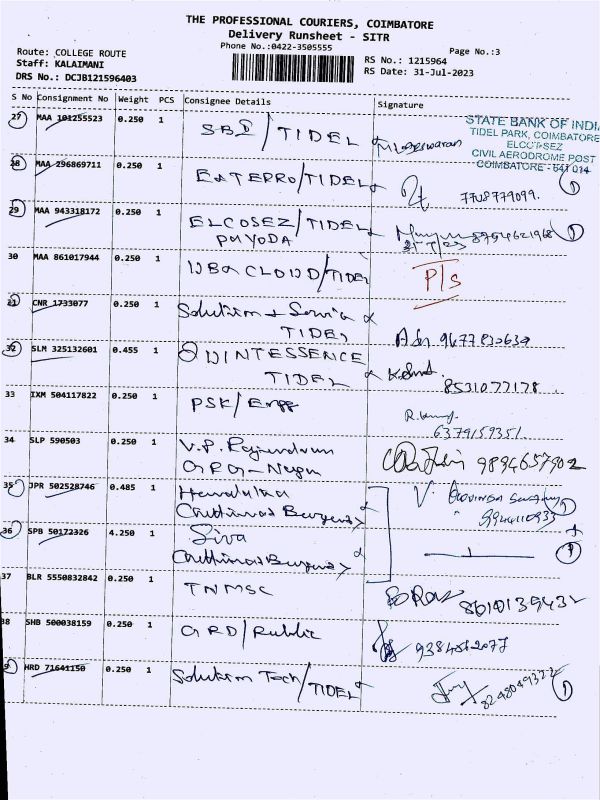 THE PROFESSIONAL COURIERS, COIMBATORE
Delivery Runsheet - SITR
Phone No.:0422-3505555
Page No.:3
Route: COLLEGE ROUTE
RS No.: 1215964
Staff: KALAIMANI
RS Date: 31-Jul-2023
DRS No.: DCJB121596403
S No Consignment No Weight PCS Consignee Details Signature
27 MAA 101255523 0.250 1 SBI/TIDEL
STATE BANK OF INDIA
TIDEL PARK, COIMBATORE
ELCOT-SEZ
CIVIL AERODROME POST
COIMBATORE - 641 014
28 MAA 296869711 0.250 1 /TIDEL 7708779099.
29 MAA 943318172 0.250 1 ELCOSEZ/TIDEL 8754621968
PMYODA
30 MAA 861017944 0.250 1 /TIDEL P/S
31 CNR 1733077 0.250 1 Solution + Service
TIDEL
32 SLM 325132601 0.455 1 QUINTESSENCE
TIDEL 8531077178.
33 IXM 504117822 0.250 1 PSK/Engg
6379159351.
34 SLP 590503 0.250 1 V.P. Rajendran 9894657902
GRG-Nagar
35 JPR 502528746 0.485 1 V.
9944110933
36 SPB 50172326 4.250 1 Siva
37 BLR 5550832842 0.250 1 TNMSC
38 SHB 500038159 0.250 1 GRD/Public
39 HRD 71641150 0.250 1 Solution Tech/TIDEL 8248049322